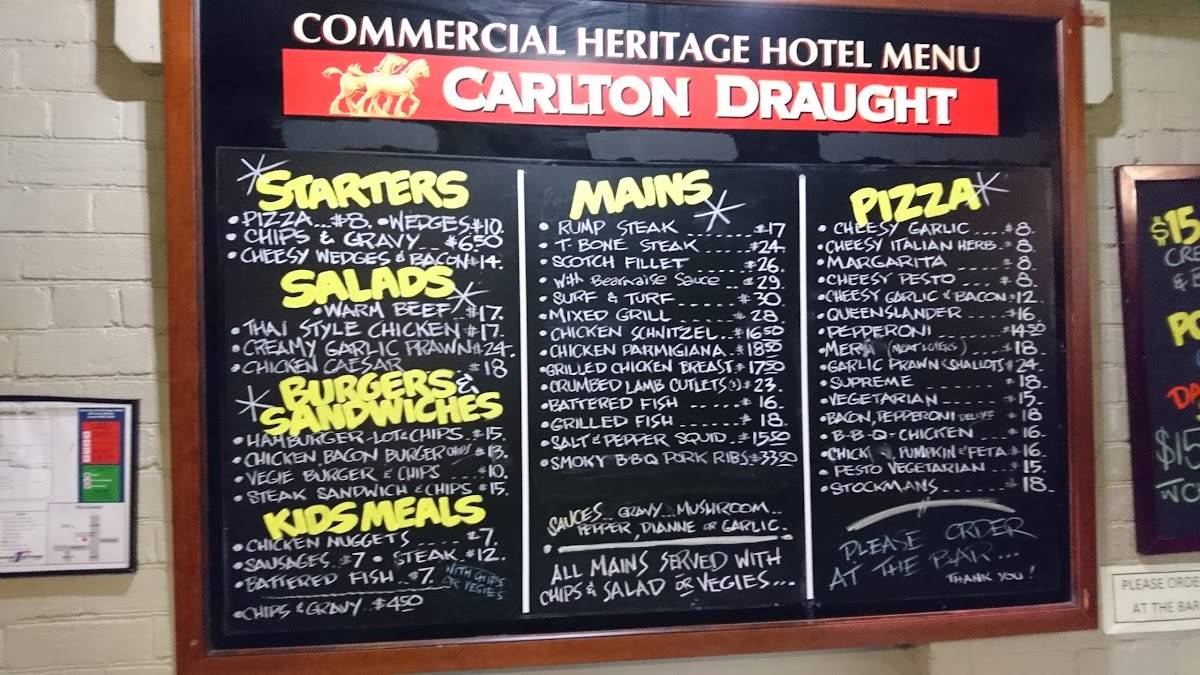 COMMERCIAL HERITAGE HOTEL MENU
CARLTON DRAUGHT
STARTERS
• PIZZA...$8. • WEDGES $10.
• CHIPS & GRAVY... $6.50
• CHEESY WEDGES & BACON $14.
SALADS
• WARM BEEF $17.
• THAI STYLE CHICKEN $17.
• CREAMY GARLIC PRAWN $24.
• CHICKEN CAESAR $18
BURGERS &
SANDWICHES
• HAMBURGER-LOT & CHIPS. $15.
• CHICKEN BACON BURGER CHIPS $13.
• VEGIE BURGER & CHIPS ---- $10.
• STEAK SANDWICH & CHIPS $15.
KIDS MEALS
• CHICKEN NUGGETS ----- $7.
• SAUSAGES. $7 • STEAK $12.
• BATTERED FISH.. $7.
WITH CHIPS
OR VEGIES
• CHIPS & GRAVY. $4.50
MAINS
• RUMP STEAK ------- $17
• T-BONE STEAK ------ $24.
• SCOTCH FILLET ------ $26.
• With Bearnaise Sauce -- $29.
• SURF & TURF ------ $30.
• MIXED GRILL ------ $28.
• CHICKEN SCHNITZEL.. $16.50
• CHICKEN PARMIGIANA.. $18.50
• GRILLED CHICKEN BREAST $17.50
• CRUMBED LAMB CUTLETS (3) $23.
• BATTERED FISH ----- $16.
• GRILLED FISH ------ $18.
• SALT & PEPPER SQUID.. $15.50
• SMOKY B·B·Q PORK RIBS $33.50
SAUCES.. GRAVY. MUSHROOM..
PEPPER, DIANNE OR GARLIC.
ALL MAINS SERVED WITH
CHIPS & SALAD OR VEGIES...
PIZZA
• CHEESY GARLIC ---- $8.
• CHEESY ITALIAN HERB.. $8.
• MARGARITA ------ $8.
• CHEESY PESTO ---- $8.
• CHEESY GARLIC & BACON $12.
• QUEENSLANDER ---- $16.
• PEPPERONI ------ $14.50
(MEAT LOVERS) ---- $18.
• GARLIC PRAWN & SHALLOTS $24.
• SUPREME -------- $18.
• VEGETARIAN ------ $15.
• BACON, PEPPERONI DELUXE $18
• B-B-Q-CHICKEN ---- $16.
PUMPKIN & FETA $16.
• PESTO VEGETARIAN --- $15.
• STOCKMANS ------- $18.
PLEASE ORDER
AT THE BAR...
THANK YOU!
$15
PLEASE ORDE
AT THE BAR